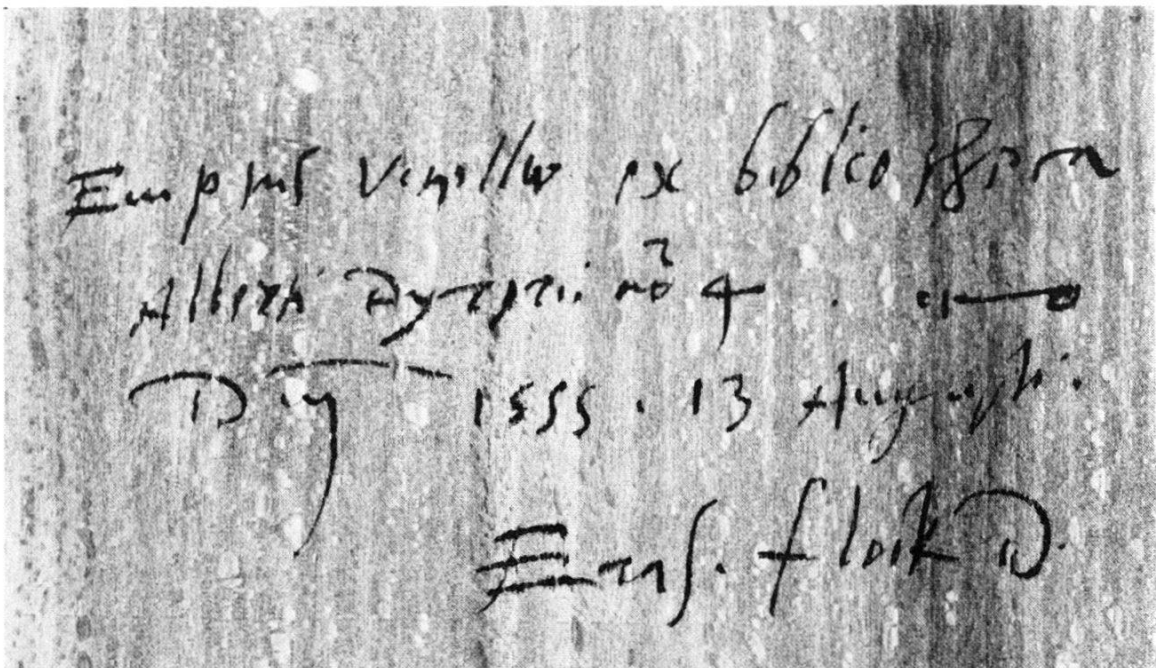 Emptus Venellio ex bibliotheca
Alberti Dyreri. 4 .
Dny 1555 . 13 Augusti.
Erass. flock D.